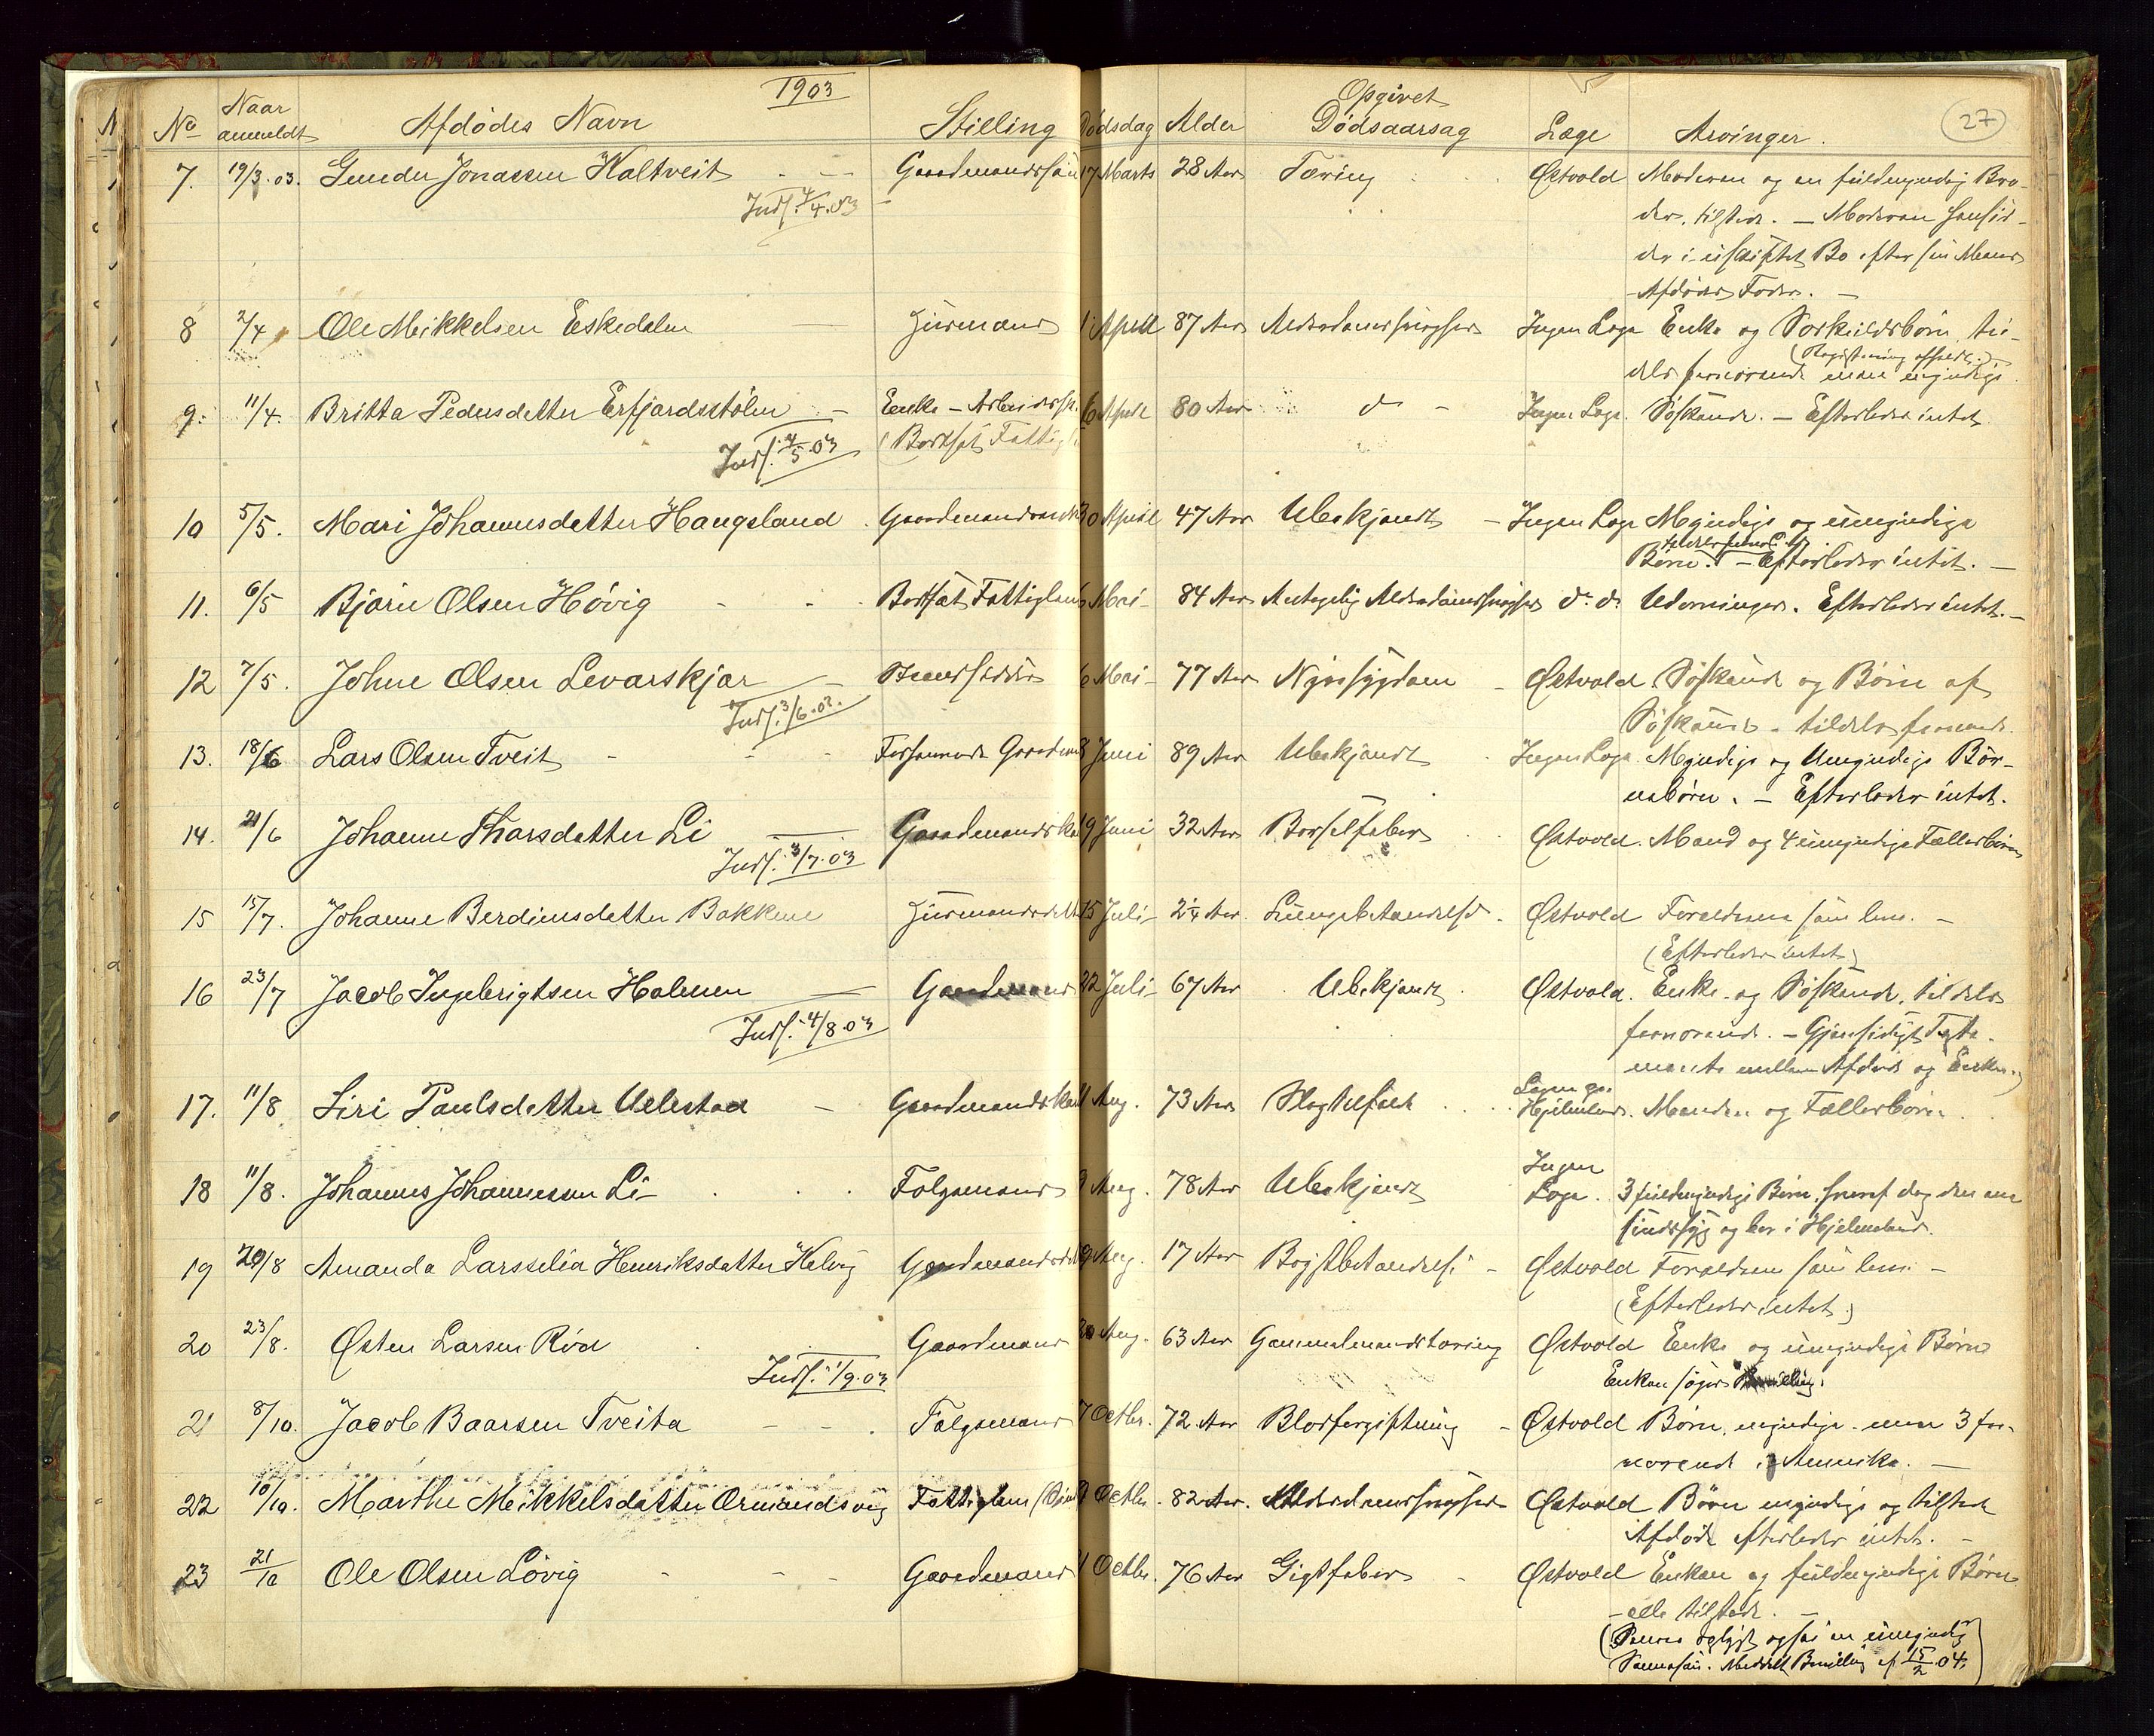 1903
27
No Naar anmeldt Afdødes Navn Stilling Dødsdag Alder Opgivet Dødsaarsag Læge Arvinger.
7. 19/3.03. Gunder Jonassen Kaltveit Gaardmandssøn 17 Marts 28 Aar Tæring Østvold Moderen og en fuldmyndig Bro-
der, tilstede. — Moderen hensid-
Indf. 4/4.03
der i uskiftet Bo efter sin Mand
Afdødes Fader. —
8 2/4 Ole Mikkelsen Eskedalen Huusmand 1 April 87 Aar Alderdomssvaghed Ingen Læge Enke og Sødskendebørn, til-
(Registrering afholdt.)
dels fraværende men myndige
9. 11/4. Britta Pedersdatter Erfjordstølen Enke – April 80 Aar do Ingen Læge. Søskende. — Efterlader intet
Indf. 4/5.03 (Bortsat Fattigl.
10 5/5. Mari Johannesdatter Haugeland Gaardmandsenke 30 April 47 Aar Ubekjendt – Ingen Læge Myndige og umyndige
Børn. — Efterlader intet. —
11. 6/5 Bjørn Olsen Høvig Bortsat Fattiglem Mai 84 Aar Antagelig Alderdomssvaghed do. do. Udarvinger. Efterlader intet. —
12 7/5. Johne Olsen Levarskjær 6 Mai 77 Aar Nyresygdom Østvold Søskende og Børn af
Indf. 3/6.03. Søskende – tildels fraværende.
13. 18/6 Lars Olsen Tveit Forhenværende Gaardmand Juni 89 Aar Ubekjendt Ingen Læge. Myndige og Umyndige Bør-
nebørn. — Efterlader intet.
14. 21/6 Johanne Thorsdatter Li Gaardmandskone 19 Juni 32 Aar Barselfeber Østvold. Mand og 4 umyndige Fællesbørn
Indf. 3/7.03
15 15/7. Johanne Berdinesdatter Bakkene Huusmandsdatter 15 Juli 2¼ Aar. Lungebetændelse Østvold Forældrene som leve. —
(Efterlader intet)
16 23/7 Jacob Ingebrigtsen Holmen Gaardmand 22 Juli 67 Aar Ubekjendt Østvold. Enke og Søskende, tildels
Indf. 4/8.03 fraværende. — Gjensidigt Testa-
mente mellem Afdøde og Enken.
17. 11/8 Siri Paulsdatter Ulestad Gaardmandskone Aug. 73 Aar Slagtilfælde Hjelmeland. Manden og Fællesbørn
18 11/8. Johannes Johannessen Li Folgemand Aug. 78 Aar Ubekjendt Ingen
Læge. 3 fuldmyndige Børn, hvoraf dog den ene
sindssyg og bor i Hjelmeland.
19 20/8 Amanda Larsselia Henriksdatter Helvig Gaardmandsdatter 19 Aug. 17 Aar Brystbetændelse – Østvold Forældrene som leve –
(Efterlader intet)
20 23/8. Østen Larsen Rød Gaardmand 20 Aug. 63 Aar Gammelmandstæring Østvold Enke og umyndige Børn
Indf. 1/9.03 Enken søger Bevilling.
21 8/10. Jacob Baarsen Tveita Folgemand 7 Octbr. 72 Aar Blodforgiftning – Østvold Børn, myndige men 3 fra-
værende i Amerika. —
22 10/10. Marthe Mikkelsdatter Ormundsvig Fattiglem Octbr. 82 Aar. Alderdomssvaghed Østvold Børn myndige og tilstede
Afdøde efterlader intet. —
23 21/10 Ole Olsen Løvig Gaardmand Octbr. 76 Aar Gigtfeber – Østvold Enken og fuldmyndige Børn
– alle tilstede. —
(Senere oplyst ogsaa en umyndig
Sønnesøn. Meddelt Bevilling af 15/2.04.)